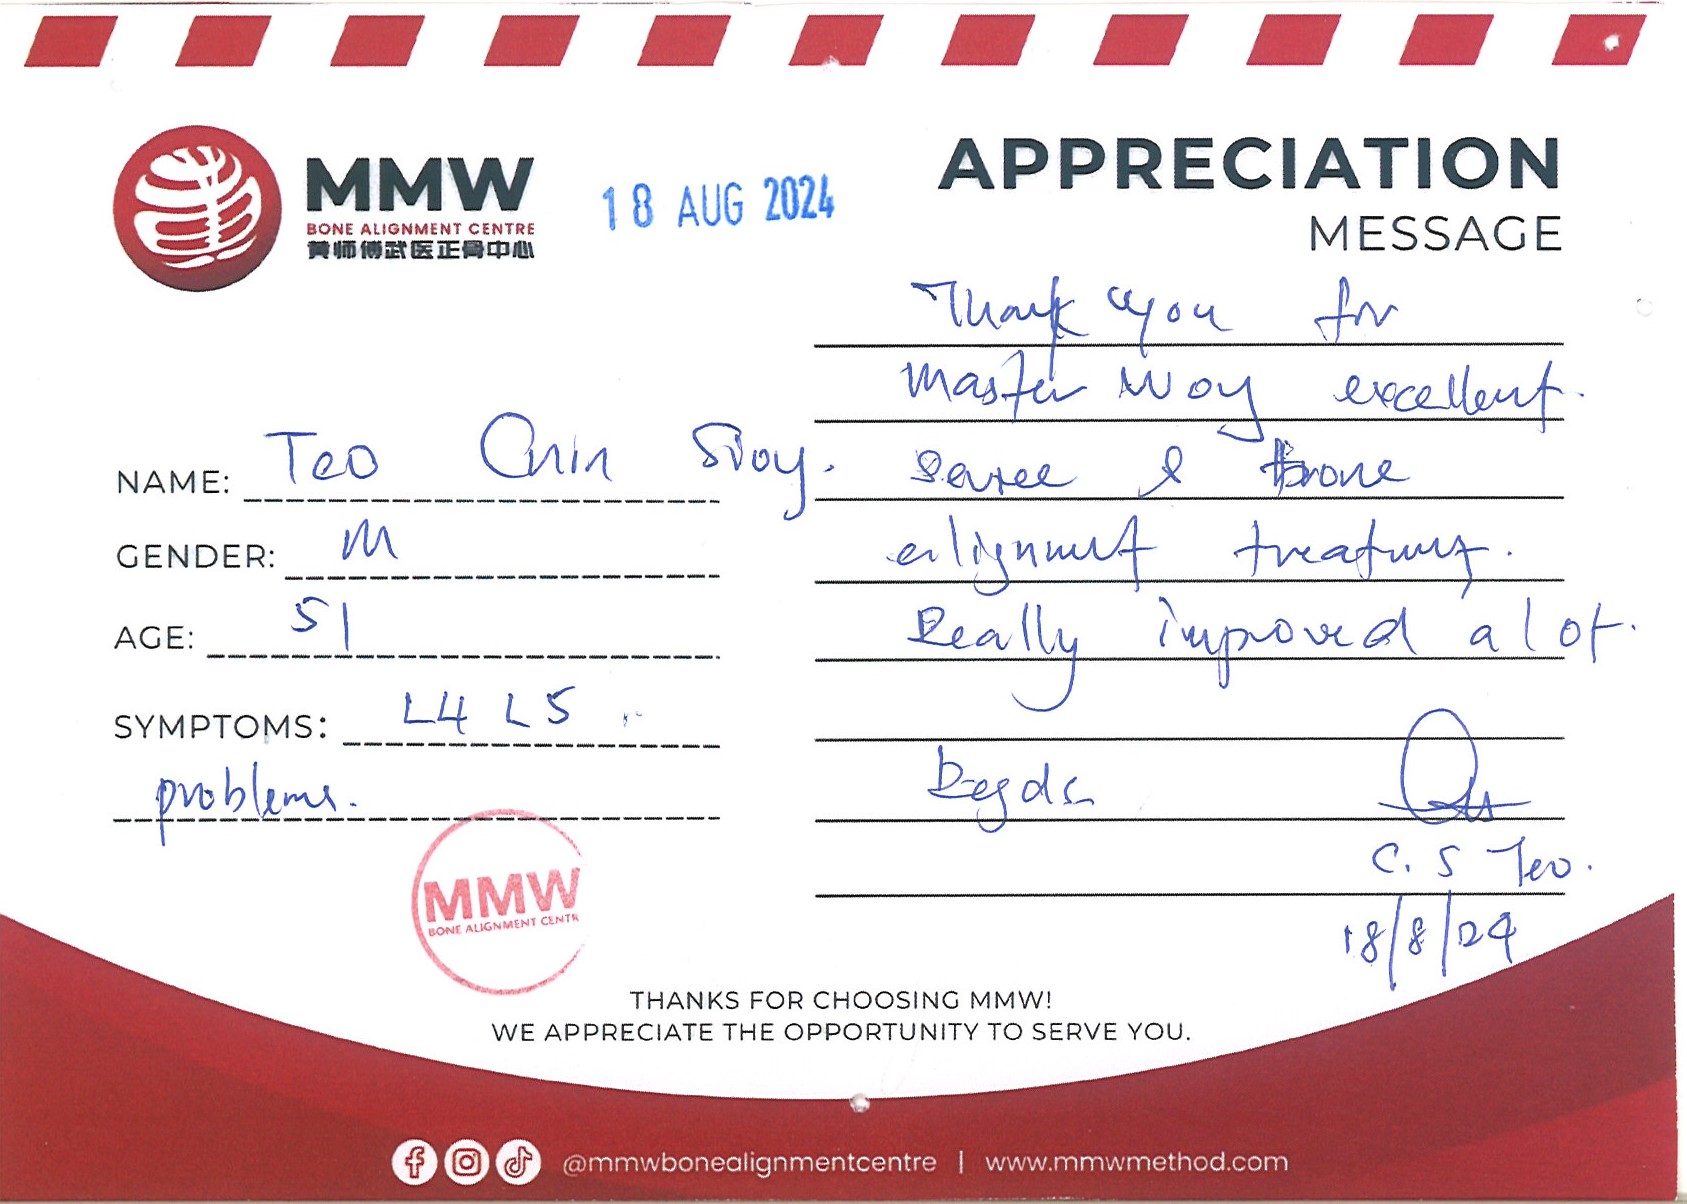 MMW
BONE ALIGNMENT CENTRE
黄师傅武医正骨中心
18 AUG 2024
APPRECIATION
MESSAGE
NAME: Teo Chin
GENDER: M
AGE: 51
SYMPTOMS: L4 L5
problems.
Thank you for
Master excellent.
& bone
alignment treatment.
Really improved a lot.
Regds
C. S Teo.
18/8/24
MMW
BONE ALIGNMENT CENTR
THANKS FOR CHOOSING MMW!
WE APPRECIATE THE OPPORTUNITY TO SERVE YOU.
@mmwbonealignmentcentre | www.mmwmethod.com